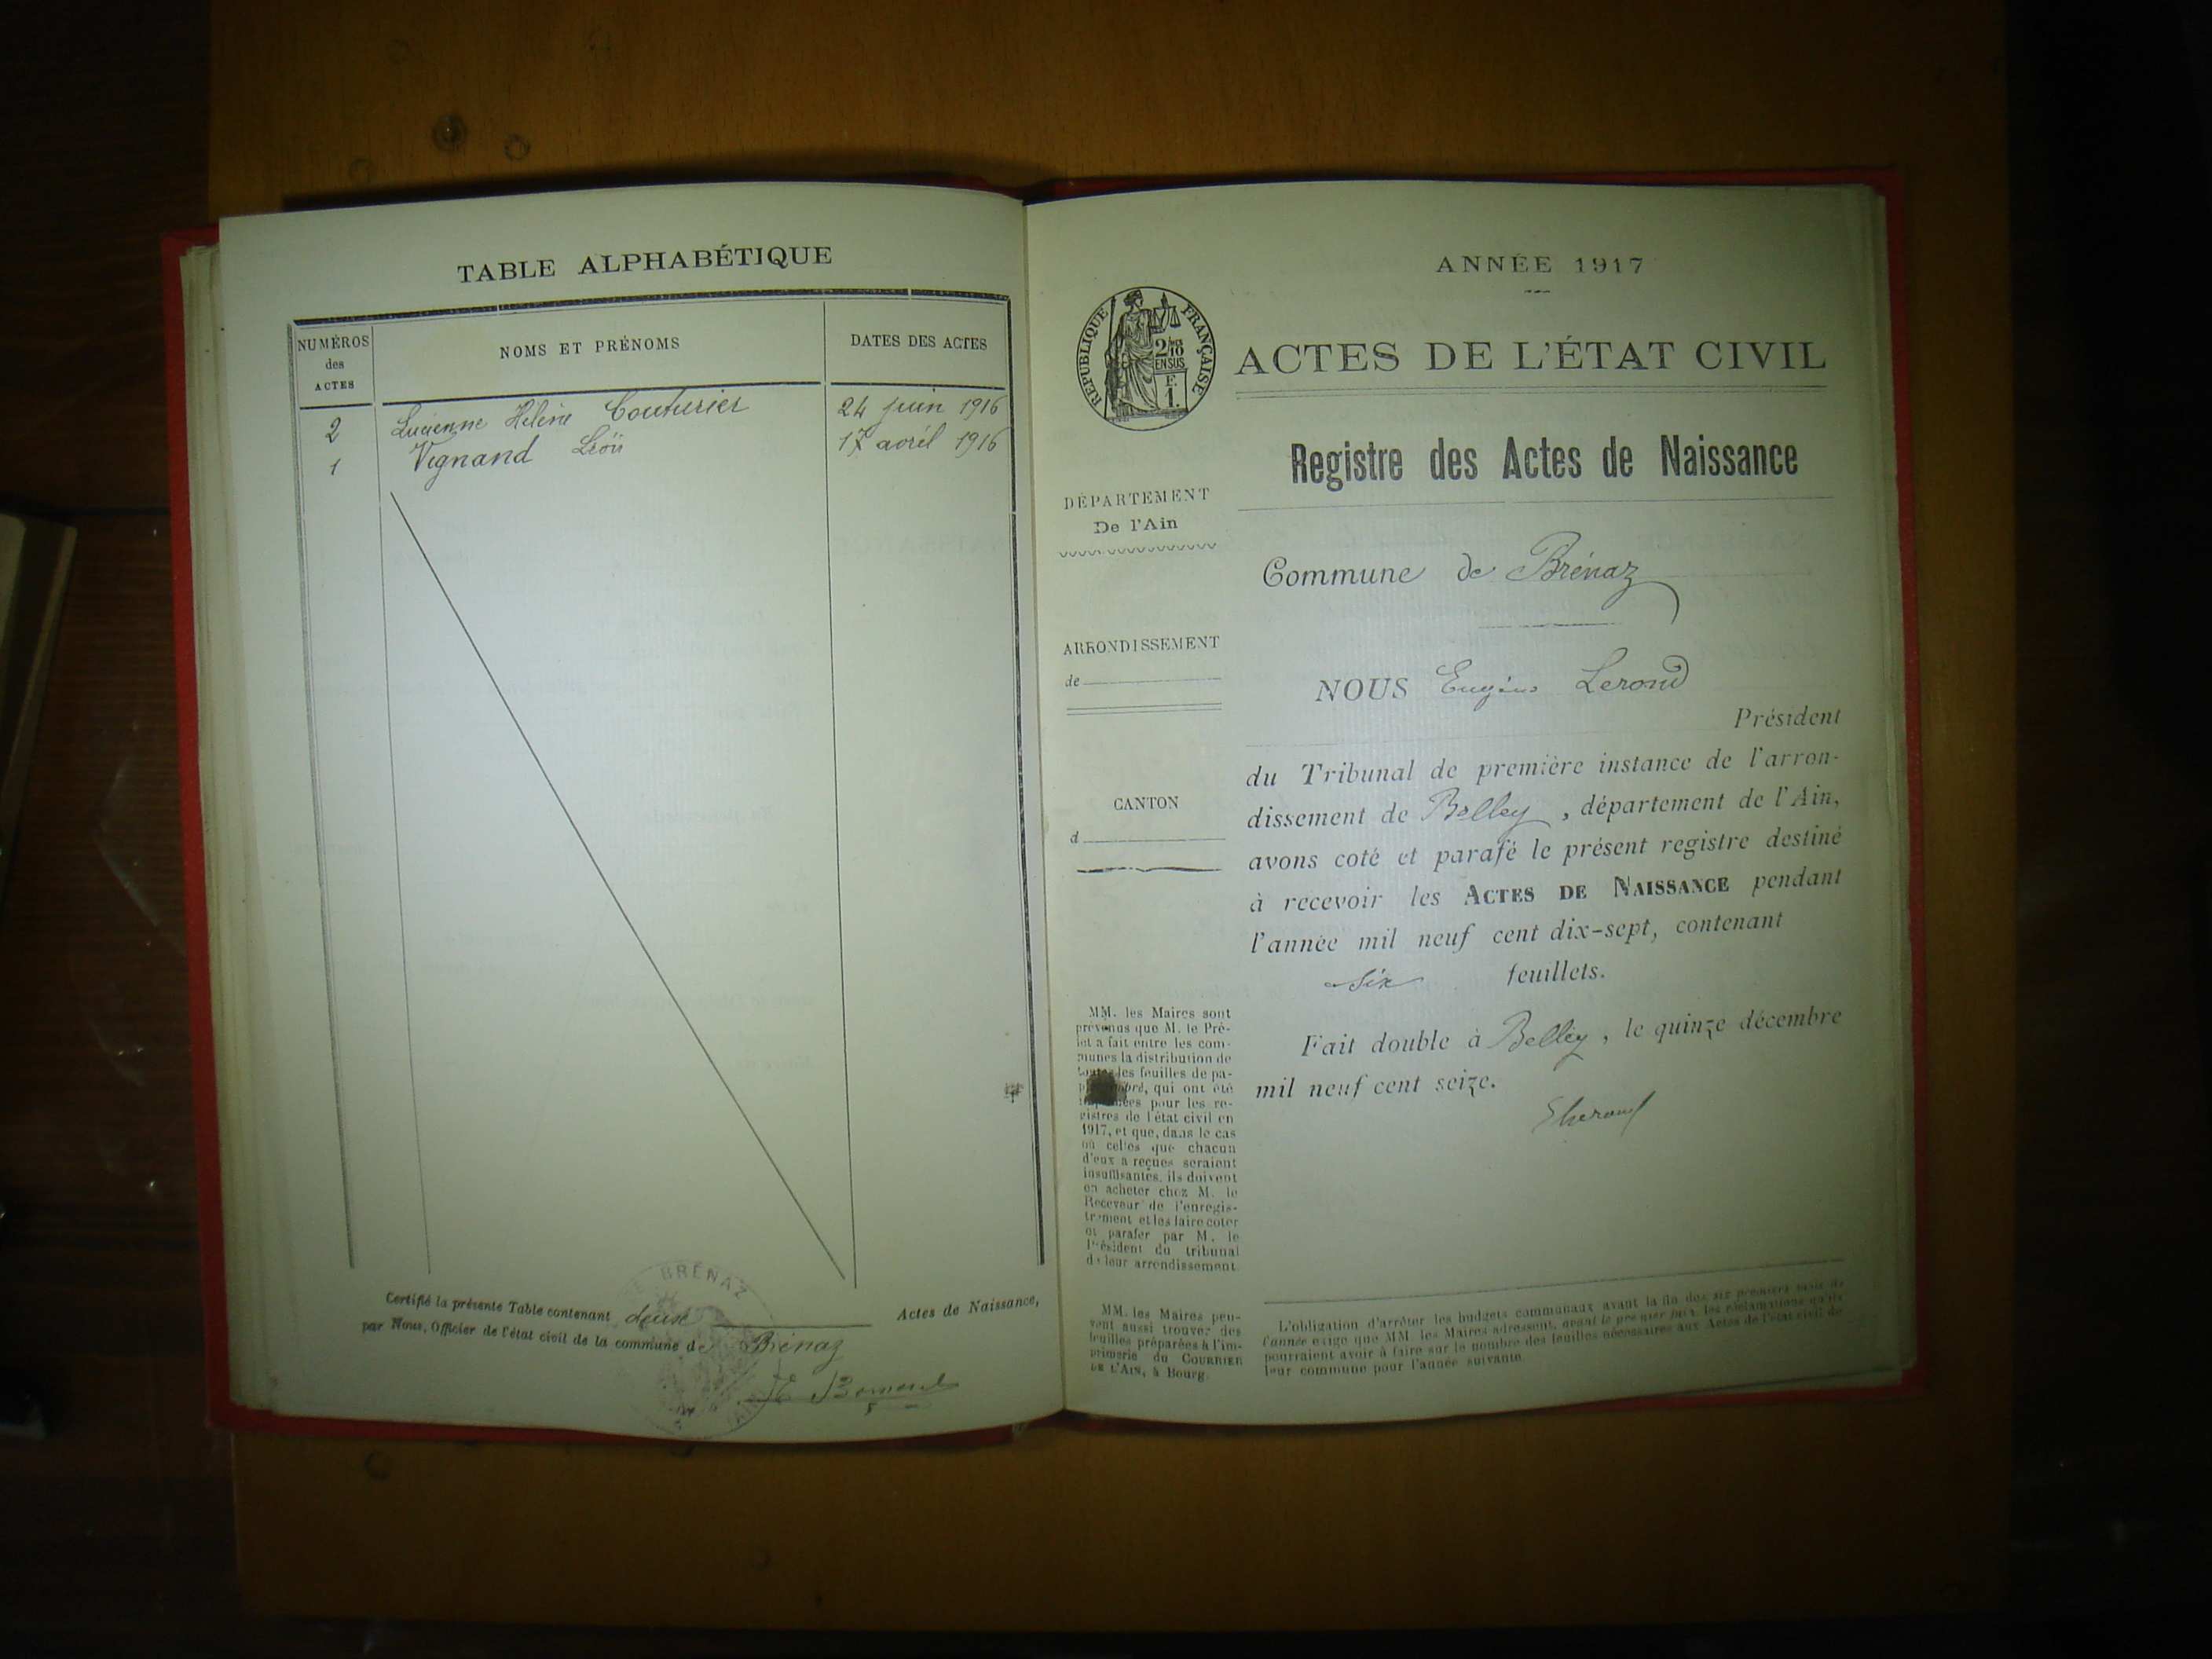 TABLE ALPHABÉTIQUE
NUMÉROS
des
ACTES
NOMS ET PRÉNOMS
DATES DES ACTES
2 Lucienne Hélène Couturier 24 juin 1916
1 Vignand Léon 17 avril 1916
Certifié la présente Table contenant deux Actes de Naissance,
par Nous, Officier de l'état civil de la commune de Brénaz
BRÉNAZ
AIN
ANNÉE 1917
RÉPUBLIQUE FRANÇAISE
2/10
EN SUS
F.
1.
ACTES DE L'ÉTAT CIVIL
Registre des Actes de Naissance
DÉPARTEMENT
De l'Ain
Commune de Brénaz
ARRONDISSEMENT
de
NOUS Eugène Lerond
Président
du Tribunal de première instance de l'arron-
dissement de Belley, département de l'Ain,
CANTON
d
avons coté et parafé le présent registre destiné
à recevoir les ACTES DE NAISSANCE pendant
l'année mil neuf cent dix-sept, contenant
six feuillets.
Fait double à Belley, le quinze décembre
mil neuf cent seize.
MM. les Maires sont
prévenus que M. le Pré-
fet a fait entre les com-
munes la distribution de
les feuilles de pa-
qui ont été
pour les re-
gistres de l'état civil en
1917, et que, dans le cas
où celles que chacun
d'eux a reçues seraient
insuffisantes, ils doivent
en acheter chez M. le
Receveur de l'enregis-
trement et les faire coter
et parafer par M. le
Président du tribunal
de leur arrondissement
MM. les Maires peu-
vent aussi trouver des
feuilles préparées à l'im-
primerie du COURRIER
DE L'AIN, à Bourg.
L'obligation d'arrêter les budgets communaux avant la fin des six premiers mois de
l'année exige que MM. les Maires adressent, avant le premier juin, les réclamations qu'ils
pourraient avoir à faire sur le nombre des feuilles nécessaires aux Actes de l'état civil de
leur commune pour l'année suivante.